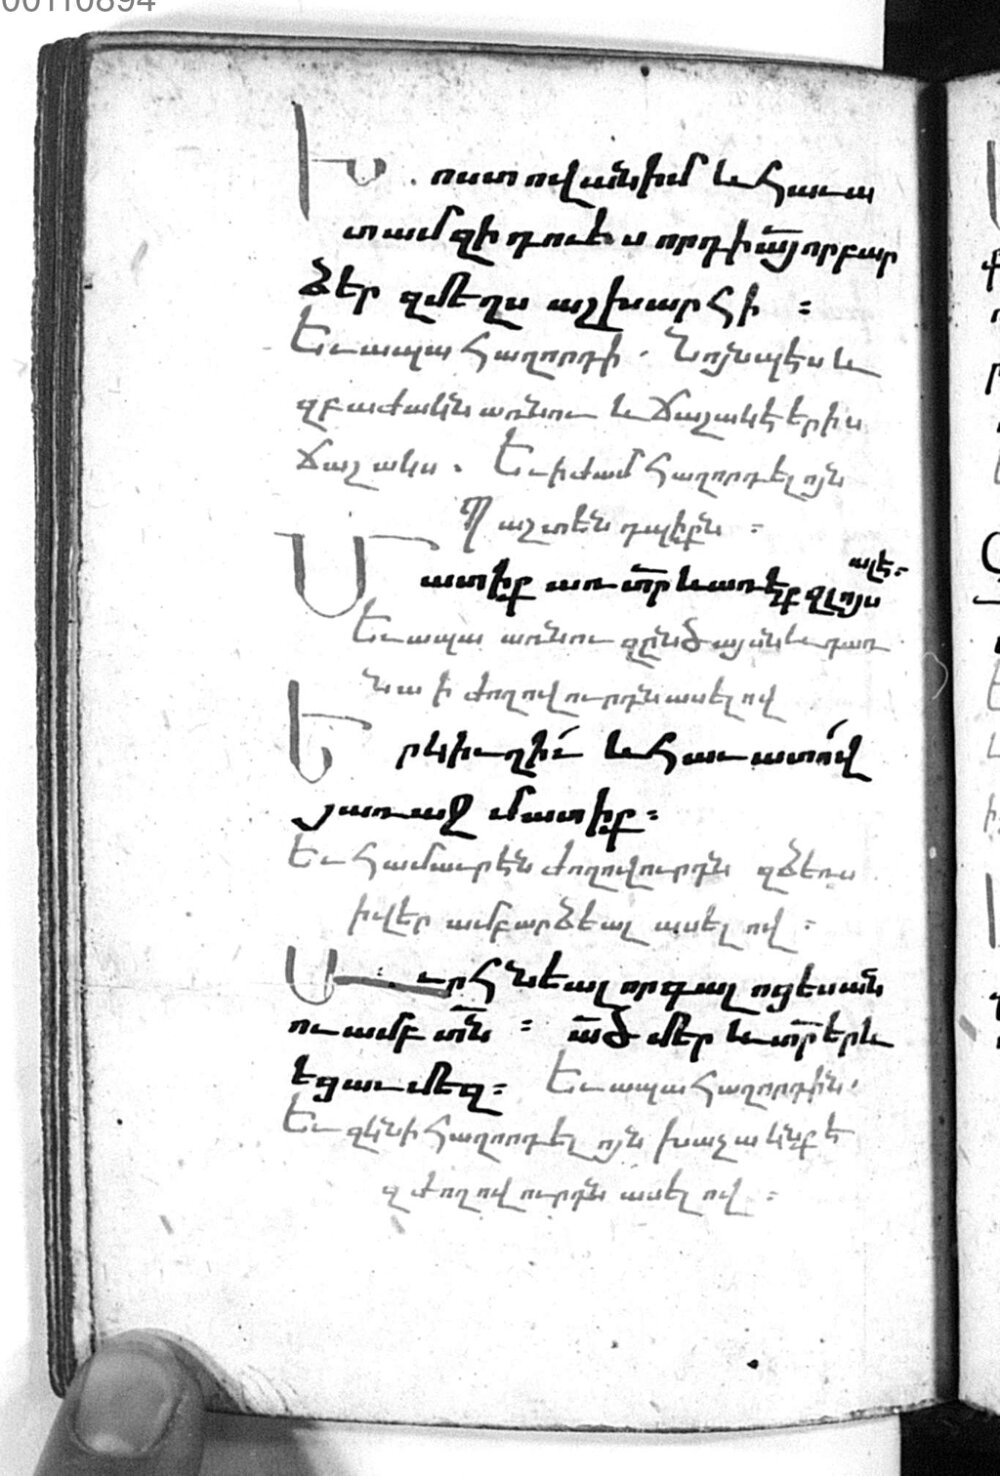 00110894
Խոստովանիմ և հաւա
տամ զի դու ես որդի ա՟յ որ բար
ձեր զմեղս աշխարհի ։
Եւ ապա հաղորդի . Նոյնպէս և
զբաժակն առնու և ճաշակէ երիս
ճաշակս . Եւ ի ժամ հաղորդելոյն
Պաշտեն դպիքն ։
ալէ։
Մատիք առ տ՟ր և առէք զլոյս
Եւ ապա առնու զընծայսն և դառ
նա ի ժողովուրդն ասելով
Երկիւղիւ և հաւատով
յառաջ մատիք ։
Եւ համաւրէն ժողովուրդն զձեռս
ի վեր ամբարձեալ ասելով ։
Աւրհնեալ որ գալոցես ան
ուամբ տ՟ն ։ ա՟ծ մեր և տ՟ր երև
եցաւ մեզ ։ Եւ ապա հաղորդին .
Եւ զկնի հաղորդելոյն խաչակնքէ
զժողովուրդն ասելով ։